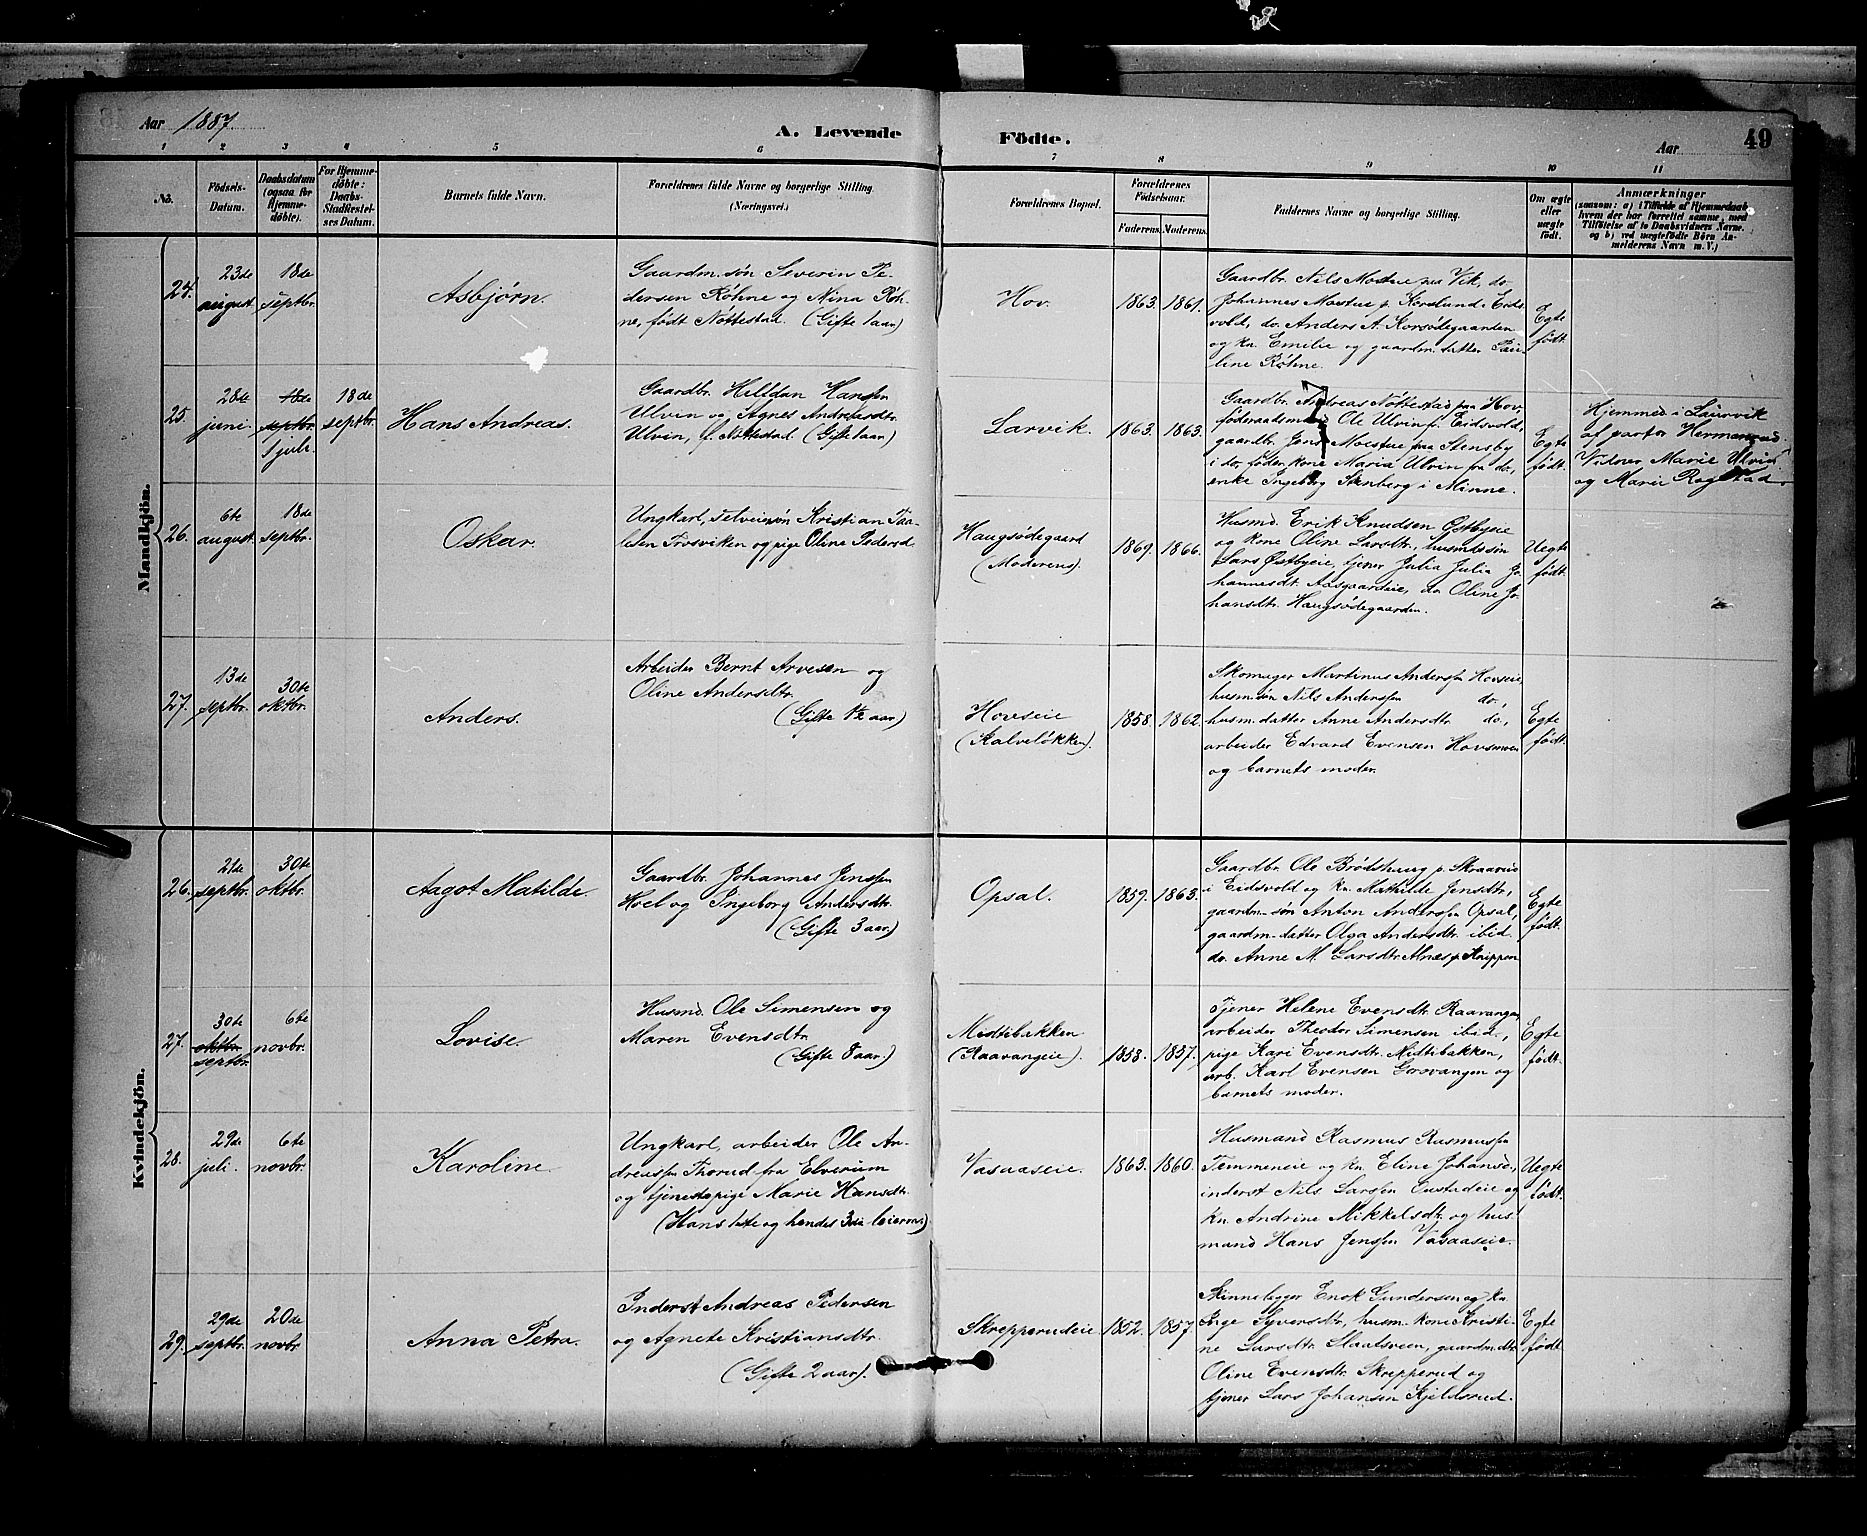 Aar 1887.
A. Levende
Födte.
Aar
49
1 2 3 4 5 6 7 8 9 10 11
No.
Födsels-
Datum.
Daabsdatum
(ogsaa for
Hjemme-
døbte).
For Hjemme-
døbte:
Daabs-
Stadfæstel-
ses Datum.
Barnets fulde Navn.
Forældrenes fulde Navne og borgerlige Stilling
(Næringsvei.)
Forældrenes Bopæl.
Forældrenes
Födselsaar.
Faderens. Moderens.
Faddernes Navne og borgerlige Stilling.
Om ægte
eller
uægte
født.
Anmærkninger
(saasom: a) i Tilfælde af Hjemmedaab
hvem der har forrettet samme, med
Tilföielse af to Daabsvidners Navne.
og b) ved uægtefödte Börn An-
melderens Navn m. V.)
Mandkjön.
24.
23de
august.
18de
septbr.
Asbjörn.
Gaardm. sön Severin Pe-
dersen Röhne og Nina Röh-
ne, födt Nöttestad. (Gifte 1 aar)
Hov.
1863. 1861.
Gaardbr. Nils Moestue paa Vik, do
Johannes Moestue p. Korslund i Eids-
vold, do. Anders A. Korsödegaarden
og kn. Emelie og gaardm. datter Pau-
line Röhne.
Egte
födt.
25.
28de
juni.
18de
septbr.
1 juli.
18de
septbr.
Hans Andreas.
Gaardbr. Helfdan Hansen
Ulvin og Agnes Andreasdtr.
Ulvin, f. Nöttestad. (Gifte 1 aar)
Larvik.
1863. 1863.
Gaardbr. Andreas Nöttestad paa Hov,
föderaadsmand Ole Ulvin fr. Eidsvold,
gaardbr. Jens Moestue paa Stensby
i do, föder. kone Maria Ulvin fra do.,
enke Ingeborg Stenberg i Minne.
Egte
födt.
Hjemmed. i Laurvik
af pastor Hermanrud.
Vidner Marie Ulvin
og Marie Rogstad.
26.
6te
august.
18de
septbr.
Oskar.
Ungkarl, Selveiersön Kristian Paa-
lesen Trosviken og pige Oline Pedersd.
Haugsödegaard
(Moderens).
1869. 1866.
Husmd. Erik Knudsen Östbyeie
og kone Oline Larsdtr., husmdssön
Lars Östbyeie, tjener Julia Julia Jo-
hannesdt. Aasgaardeie, do. Oline Jo-
hansdtr. Haugsödegaarden.
Uegte
födt.
27.
13de
septbr.
30te
oktbr.
Anders.
Arbeider Bernt Arvesen og
Oline Andersdtr.
(Gifte 1½ aar)
Hovseie
(Kalvelökken).
1858. 1862.
Skomager Martinus Anderssen Hovseie,
husm. sön Nils Anderssen do.,
husm. datter Anne Andersdtr. do.,
arbeider Edvard Evensen Hovsmoen
og barnets moder.
Egte
födt.
Kvindekjön.
26.
21de
septbr.
30te
oktbr.
Aagot Matilde.
Gaardbr. Johannes Jenssen
Hoel og Ingeborg Andersdtr.
(Gifte 3 aar.)
Opsal.
1859. 1863.
Gaardbr. Ole Brödshaug p. Skraarud
i Eidsvold og kn. Mathilde Jensdtr.,
gaardm-sön Anton Anderssen Opsal,
gaardm-datter Olga Andersdtr. ibid
do. Anne M. Larsdtr. Alnæs p. Knippen
Egte
födt.
27.
30te
oktbr.
septbr.
6te
novbr.
Lovise.
Husmd. Ole Simensen og
Maren Evensdtr.
(Gifte 8 aar.)
Midtibakken
(Raavangeie).
1858. 1857.
Tjener Helene Evensdtr. Raavangen,
arbeider Theodor Simensen ibid.,
pige Kari Evensdtr. Midtibakken,
arb. Karl Evensen Grovangen og
barnets moder.
Egte
födt.
28.
29de
juli.
6te
novbr.
Karoline.
Ungkarl, arbeider Ole An-
dreassen Thorud fra Elverum
og tjenestepige Marie Hansdtr.
(Hans 1ste og hendes 3die leierm.)
Vasaaseie.
1863. 1860.
Husmand Rasmus Rasmussen
Temmeneie og kn. Eline Johansd.,
inderst Nils Larssen Eustadeie og
kn. Andrine Mikkelsdtr. og hus-
mand Hans Jenssen Vasaaseie.
Uegte
födt.
29.
29de
septbr.
20de
novbr.
Anna Petra.
Inderst Andreas Pedersen
og Agnete Kristiansdtr.
(Gifte 2 aar).
Skrepperudeie
1852. 1857.
Skinnelegger Enok Gundersen og kn.
Inge Syversdtr., husm. kone Kristi-
ne Larsdtr. Slaatsveen, gaardm.dtr.
Oline Evensdtr. Skrepperud og
tjener Lars Johansen Kjeldsrud.
Egte
födt.